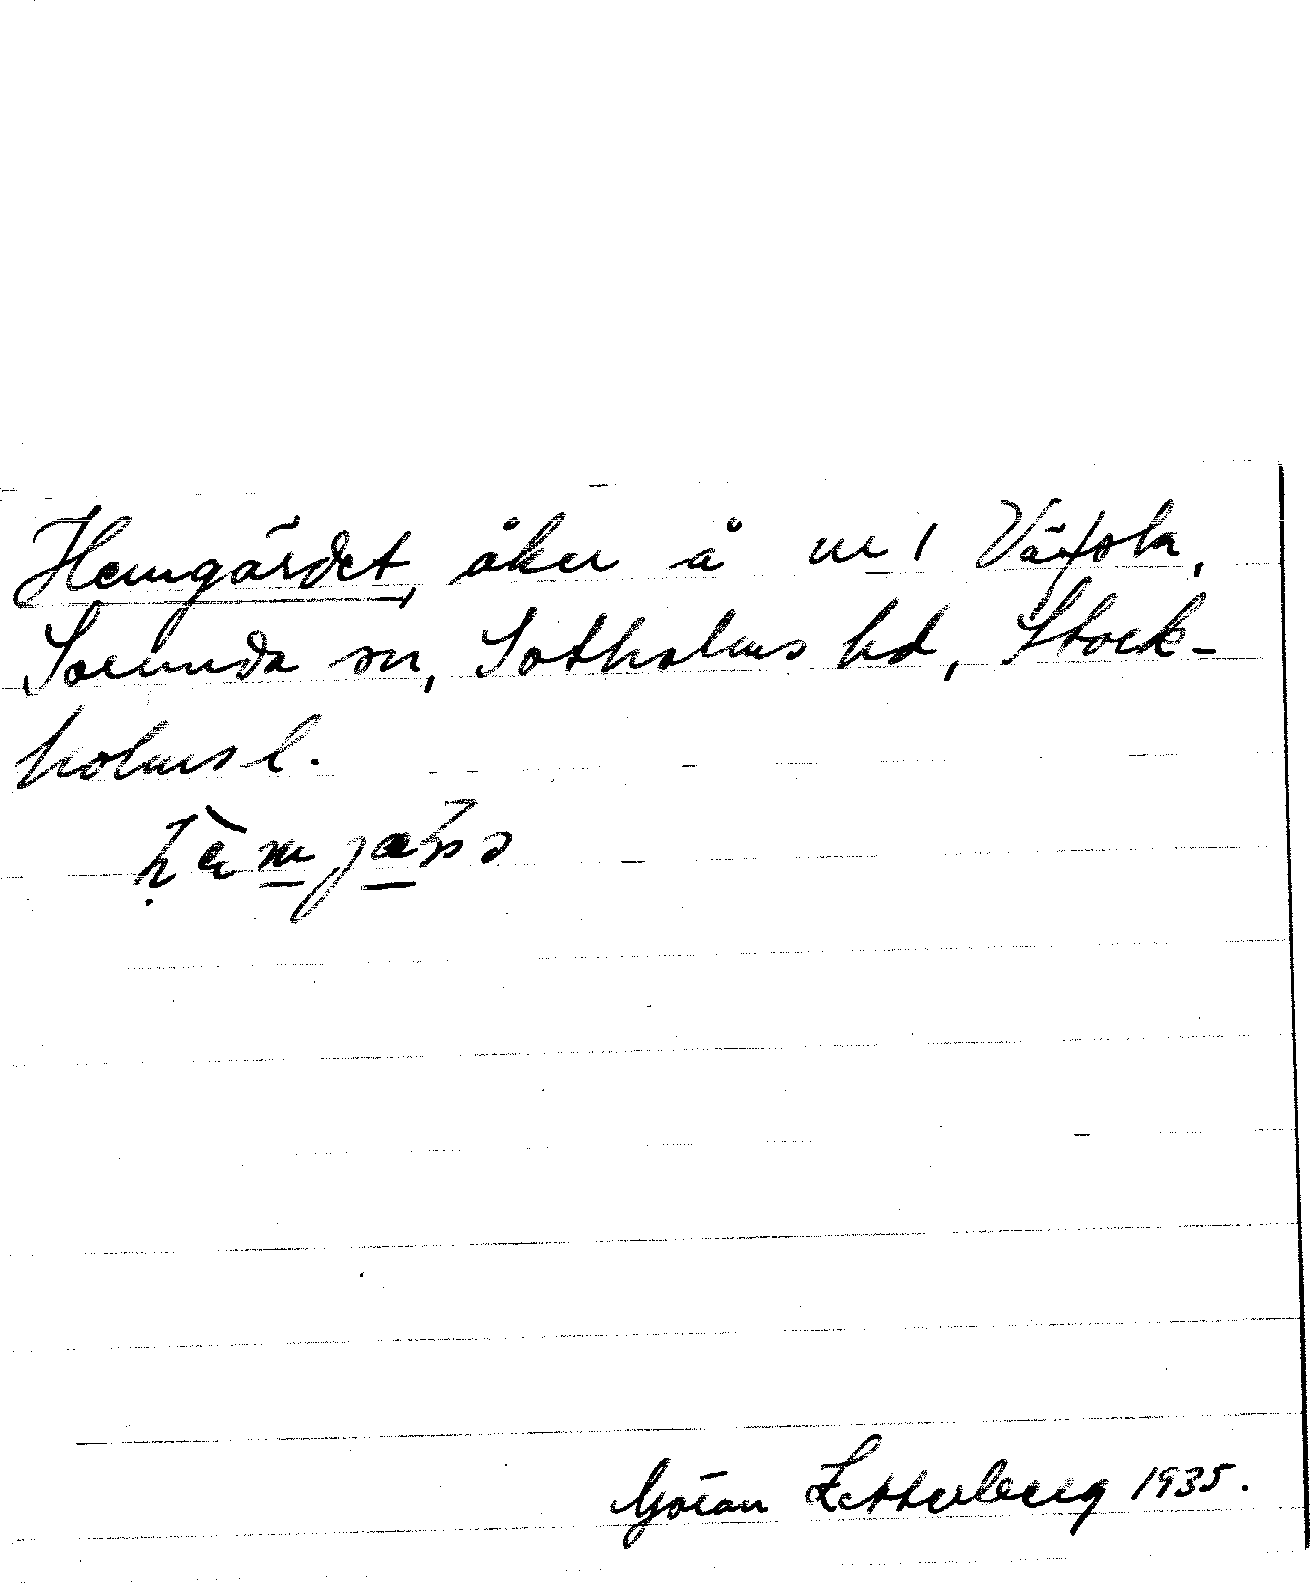 Hemgärdet, åker å nr 1 Väfsta,
Sorunda sn, Sotholms hd, Stock-
holms l.
Göran Zetterberg 1935.